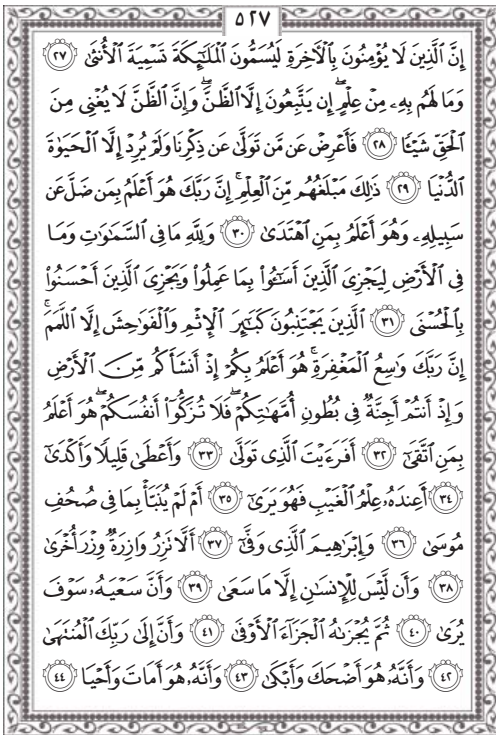 ٥٢٧
إِنَّ ٱلَّذِينَ لَا يُؤْمِنُونَ بِٱلْـَٔاخِرَةِ لَيُسَمُّونَ ٱلْمَلَـٰٓئِكَةَ تَسْمِيَةَ ٱلْأُنثَىٰ ٢٧
وَمَا لَهُم بِهِۦ مِنْ عِلْمٍ ۖ إِن يَتَّبِعُونَ إِلَّا ٱلظَّنَّ ۖ وَإِنَّ ٱلظَّنَّ لَا يُغْنِى مِنَ
ٱلْحَقِّ شَيْـًٔا ٢٨ فَأَعْرِضْ عَن مَّن تَوَلَّىٰ عَن ذِكْرِنَا وَلَمْ يُرِدْ إِلَّا ٱلْحَيَوٰةَ
ٱلدُّنْيَا ٢٩ ذَٰلِكَ مَبْلَغُهُم مِّنَ ٱلْعِلْمِ ۚ إِنَّ رَبَّكَ هُوَ أَعْلَمُ بِمَن ضَلَّ عَن
سَبِيلِهِۦ وَهُوَ أَعْلَمُ بِمَنِ ٱهْتَدَىٰ ٣٠ وَلِلَّهِ مَا فِى ٱلسَّمَـٰوَٰتِ وَمَا
فِى ٱلْأَرْضِ لِيَجْزِىَ ٱلَّذِينَ أَسَـٰٓـُٔوا۟ بِمَا عَمِلُوا۟ وَيَجْزِىَ ٱلَّذِينَ أَحْسَنُوا۟
بِٱلْحُسْنَى ٣١ ٱلَّذِينَ يَجْتَنِبُونَ كَبَـٰٓئِرَ ٱلْإِثْمِ وَٱلْفَوَٰحِشَ إِلَّا ٱللَّمَمَ ۚ
إِنَّ رَبَّكَ وَٰسِعُ ٱلْمَغْفِرَةِ ۚ هُوَ أَعْلَمُ بِكُمْ إِذْ أَنشَأَكُم مِّنَ ٱلْأَرْضِ
وَإِذْ أَنتُمْ أَجِنَّةٌ فِى بُطُونِ أُمَّهَـٰتِكُمْ ۖ فَلَا تُزَكُّوٓا۟ أَنفُسَكُمْ ۖ هُوَ أَعْلَمُ
بِمَنِ ٱتَّقَىٰٓ ٣٢ أَفَرَءَيْتَ ٱلَّذِى تَوَلَّىٰ ٣٣ وَأَعْطَىٰ قَلِيلًا وَأَكْدَىٰٓ
٣٤ أَعِندَهُۥ عِلْمُ ٱلْغَيْبِ فَهُوَ يَرَىٰٓ ٣٥ أَمْ لَمْ يُنَبَّأْ بِمَا فِى صُحُفِ
مُوسَىٰ ٣٦ وَإِبْرَٰهِيمَ ٱلَّذِى وَفَّىٰٓ ٣٧ أَلَّا تَزِرُ وَازِرَةٌ وِزْرَ أُخْرَىٰ
٣٨ وَأَن لَّيْسَ لِلْإِنسَـٰنِ إِلَّا مَا سَعَىٰ ٣٩ وَأَنَّ سَعْيَهُۥ سَوْفَ
يُرَىٰ ٤٠ ثُمَّ يُجْزَىٰهُ ٱلْجَزَآءَ ٱلْأَوْفَىٰ ٤١ وَأَنَّ إِلَىٰ رَبِّكَ ٱلْمُنتَهَىٰ
٤٢ وَأَنَّهُۥ هُوَ أَضْحَكَ وَأَبْكَىٰ ٤٣ وَأَنَّهُۥ هُوَ أَمَاتَ وَأَحْيَا ٤٤